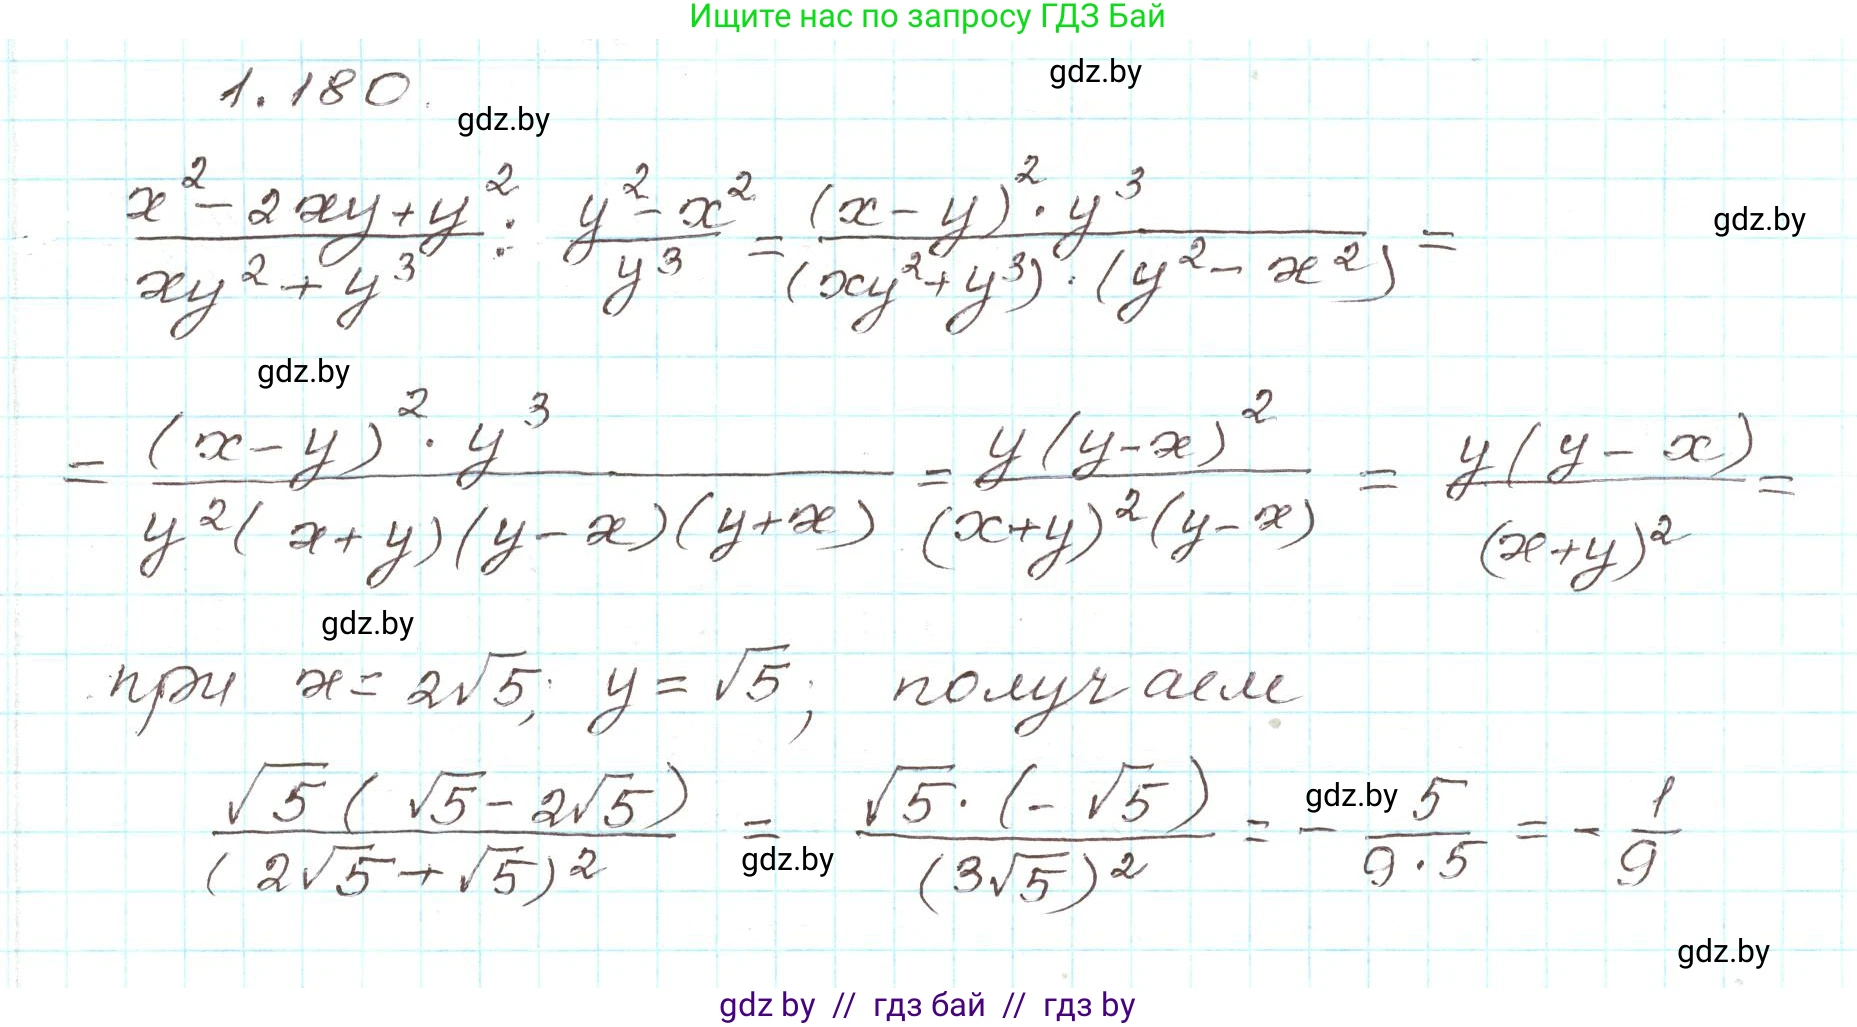 Ищите нас по запросу ГДЗ Бай
gdz.by
1.180.
gdz.by
x² - 2xy + y² / xy² + y³ : y² - x² / y³ = (x - y)² · y³ / (xy² + y³) · (y² - x²) =
gdz.by
gdz.by
= (x - y)² · y³ / y²(x + y)(y - x)(y + x) = y(y - x)² / (x + y)²(y - x) = y(y - x) / (x + y)² =
gdz.by
при x = 2√5; y = √5; получаем
√5(√5 - 2√5) / (2√5 + √5)² = √5 · (-√5) / (3√5)² = - 5 / 9 · 5 = - 1 / 9
gdz.by
gdz.by
gdz.by
gdz by // гдз бай // гдз by